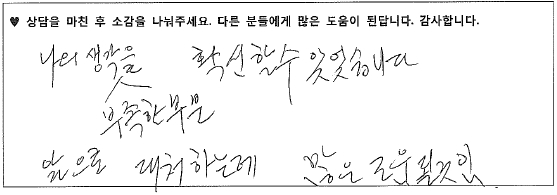 ♥ 상담을 마친 후 소감을 나눠주세요. 다른 분들에게 많은 도움이 된답니다. 감사합니다.
나의 생각을 확신할수 있었습니다
부족한부분
앞으로 대처하는데 많은 도움 될것임